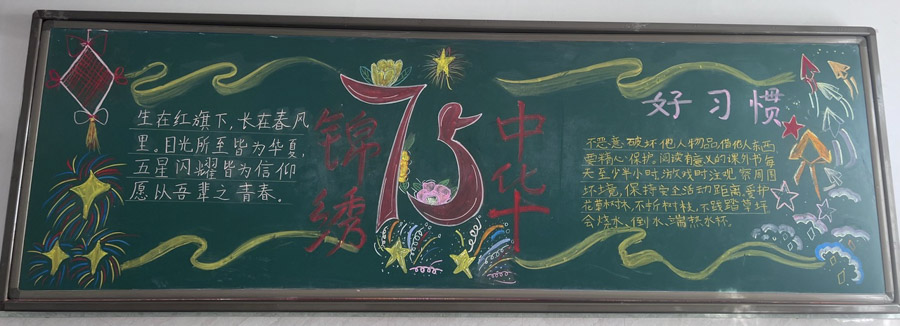 生在红旗下,长在春风
里。目光所至皆为华夏,
五星闪耀皆为信仰
愿以吾辈之青春。
锦绣
75
中华
好习惯
不恶意破坏他人物品,借他人东西
要精心保护,阅读有意义的课外书每
天至少半小时,游戏时注观察周围
环境,保持安全活动距离,爱护
花草树木,不折树枝,不践踏草坪
会烧水、倒水、端热水杯。